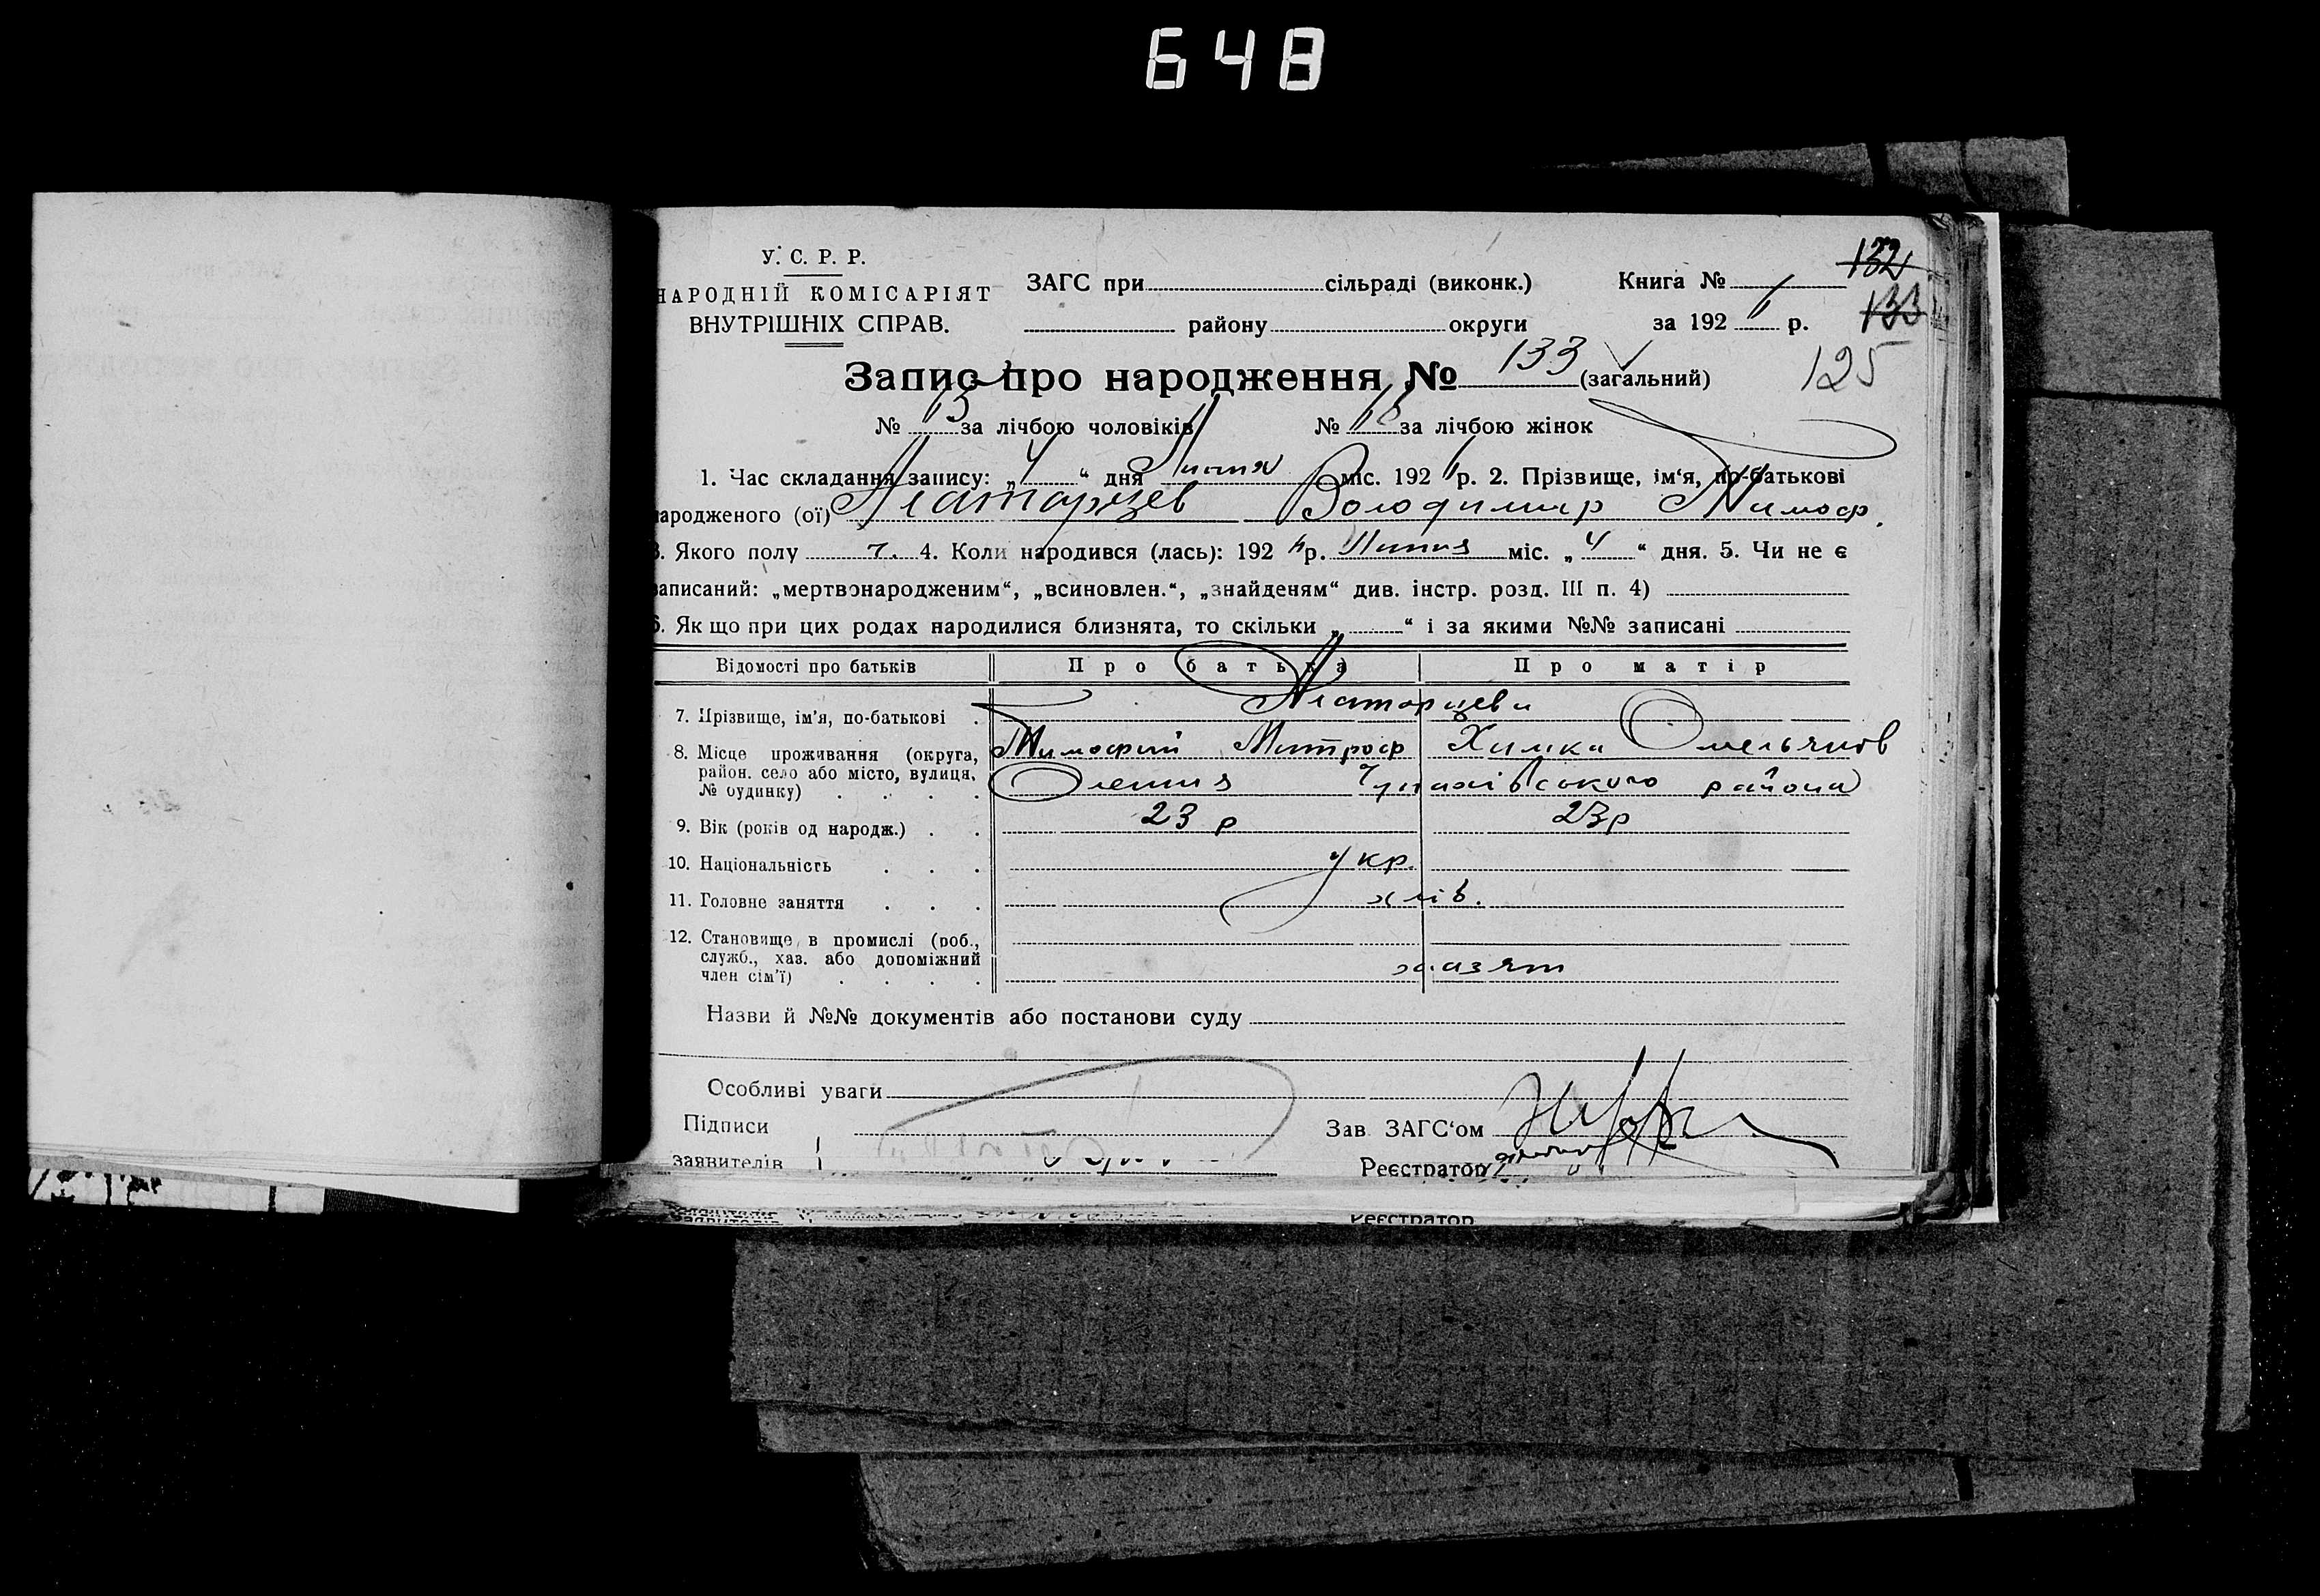 648
У. С. Р. Р.
НАРОДНІЙ КОМІСАРІЯТ
ВНУТРІШНІХ СПРАВ.
ЗАГС при сільраді (виконк.)
району округи
Книга №
за 192 р.
132
133
125
Запис про народження № 133 (загальний)
№ за лічбою чоловіків № за лічбою жінок
1. Час складання запису: „4“ дня Липня міс. 192 р. 2. Прізвище, ім‘я, по-батькові
народженого (ої) Володимир Тимоф.
3. Якого полу ч. 4. Коли народився (лась): 192 р. Липня міс. „4“ дня. 5. Чи не є
записаний: „мертвонародженим“, „всиновлен.“, „знайденям“ див. інстр. розд. III п. 4)
6. Якщо при цих родах народилися близнята, то скільки „ “ і за якими №№ записані
Відомості про батьків Про батька Про матір
7. Прізвище, ім'я, по-батькові
8. Місце проживання (округа, Тимофій Митроф Химка Омельянов
район. село або місто, вулиця, району
№ будинку)
9. Вік (років од народж.) 23 р 23 р
10. Національність укр.
11. Головне заняття хліб.
12. Становище в промислі (роб.,
служб., хаз. або допоміжний
член сім'ї)
Назви й №№ документів або постанови суду
Особливі уваги
Підписи
заявителів
Зав ЗАГС‘ом
Реєстратор
Реєстратор